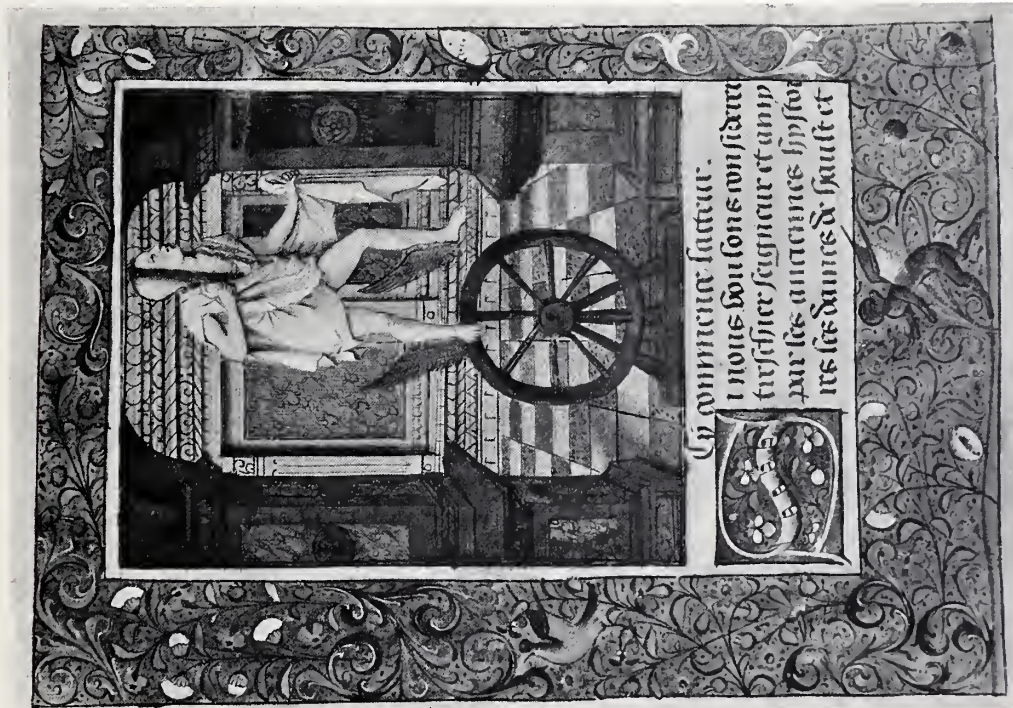 Cy commence lacteur.
Si nous voulons considerer
treschier seigneur et amy
par les anciennes hystoi
res les dames de hault et